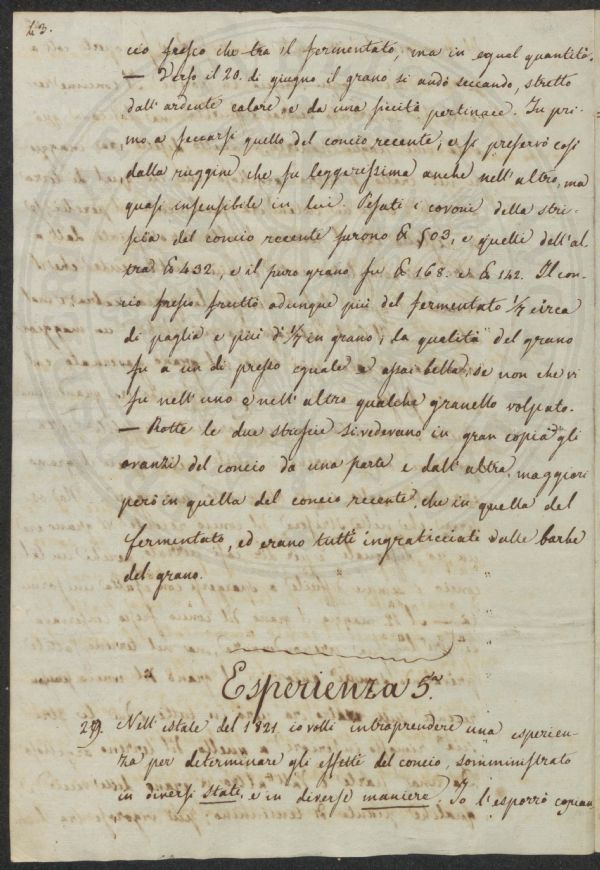 43.
cio fresco che tra il fermentato, ma in egual quantità.
— Verso il 20. di giugno il grano si andò seccando, stretto
dall'ardente calore, e da una siccità pertinace. In pri-
mo a seccarsi quello del concio recente, e si preservò così
dalla ruggine che fu leggerissima anche nell'altro, ma
quasi insensibile in lui. Pesati i covoni della stri-
scia del concio recente furono ℔ 503, e quelli dell'al-
tra ℔ 432, e il puro grano fu ℔ 168. e ℔ 142. Il con-
cio fresco fruttò adunque più del fermentato 1/7 circa
di paglia e più d'1/7 in grano; la qualità del grano
fu a un di presso eguale e assai bella; se non che vi
fu nell'uno e nell'altro qualche granello volpato.
— Rotte le due striscie si vedevano in gran copia gli
avanzi del concio da una parte e dall'altra, maggiori
però in quella del concio recente, che in quella del
fermentato, ed erano tutti ingraticciati dalle barbe
del grano.
Esperienza 5.a
29. Nell'estate del 1821 io volli intraprendere una esperien-
za per determinare gli effetti del concio, somministrato
in diversi stati, e in diverse maniere. Io l'esporrò copian